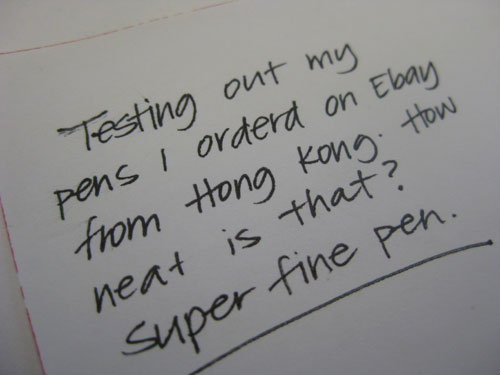 Testing out my
pens I orderd on Ebay
from Hong Kong. How
neat is that?
super fine pen.